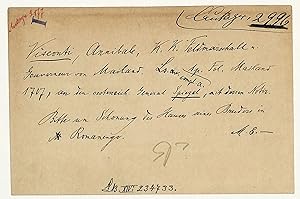 (Autogr. 2996
Visconti, Annibale, K. K. Feldmarschall u.
Gouverneur von Mailand. L. a. s. Fol. Mailand
1707, an den General Spiegel, mit dessen Notiz.
Bitte um Schonung des Hauses eines Bruders in
Romanengo. M. 6.—
AB XIV 234733.